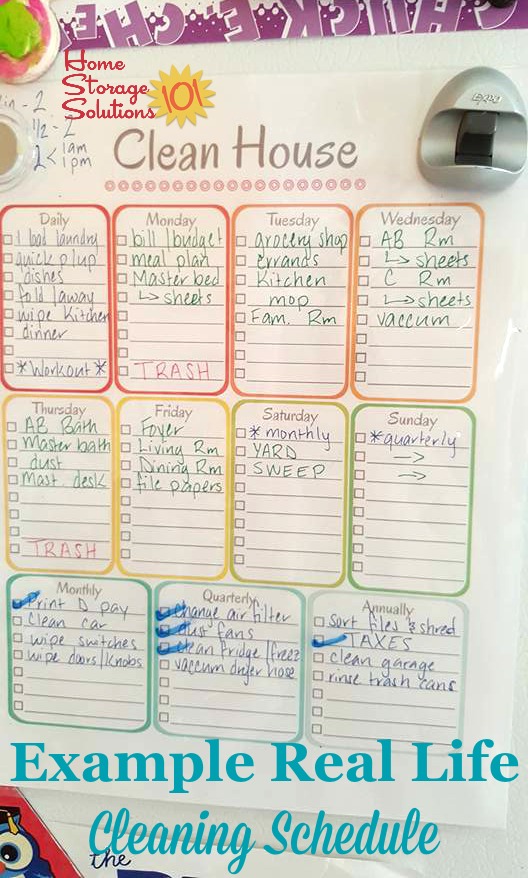 CHUCK-E-CHE
Home
Storage
Solutions 101
in - 2
1/2 - 2
2 < 1am
1pm
EXPO
Clean House
Daily
1 load laundry
quick p/up
dishes
fold /away
wipe kitchen
dinner
*Workout*
Monday
bill /budget
meal plan
Master bed
↳ sheets
TRASH
Tuesday
grocery shop
errands
Kitchen
mop
Fam. Rm
Wednesday
AB Rm
↳ sheets
C Rm
↳ sheets
vaccum
Thursday
AB Bath
Master bath
dust
Mast. desk
TRASH
Friday
Foyer
Living Rm
Dining Rm
file papers
Saturday
*monthly
YARD
SWEEP
Sunday
*quarterly
→
→
Monthly
Print D pay
Clean car
wipe switches
wipe doors/knobs
Quarterly
change air filter
dust fans
clean fridge/freez
vaccum dryer hose
Annually
sort files & shred
TAXES
clean garage
rinse trash cans
Example Real Life
Cleaning Schedule
the